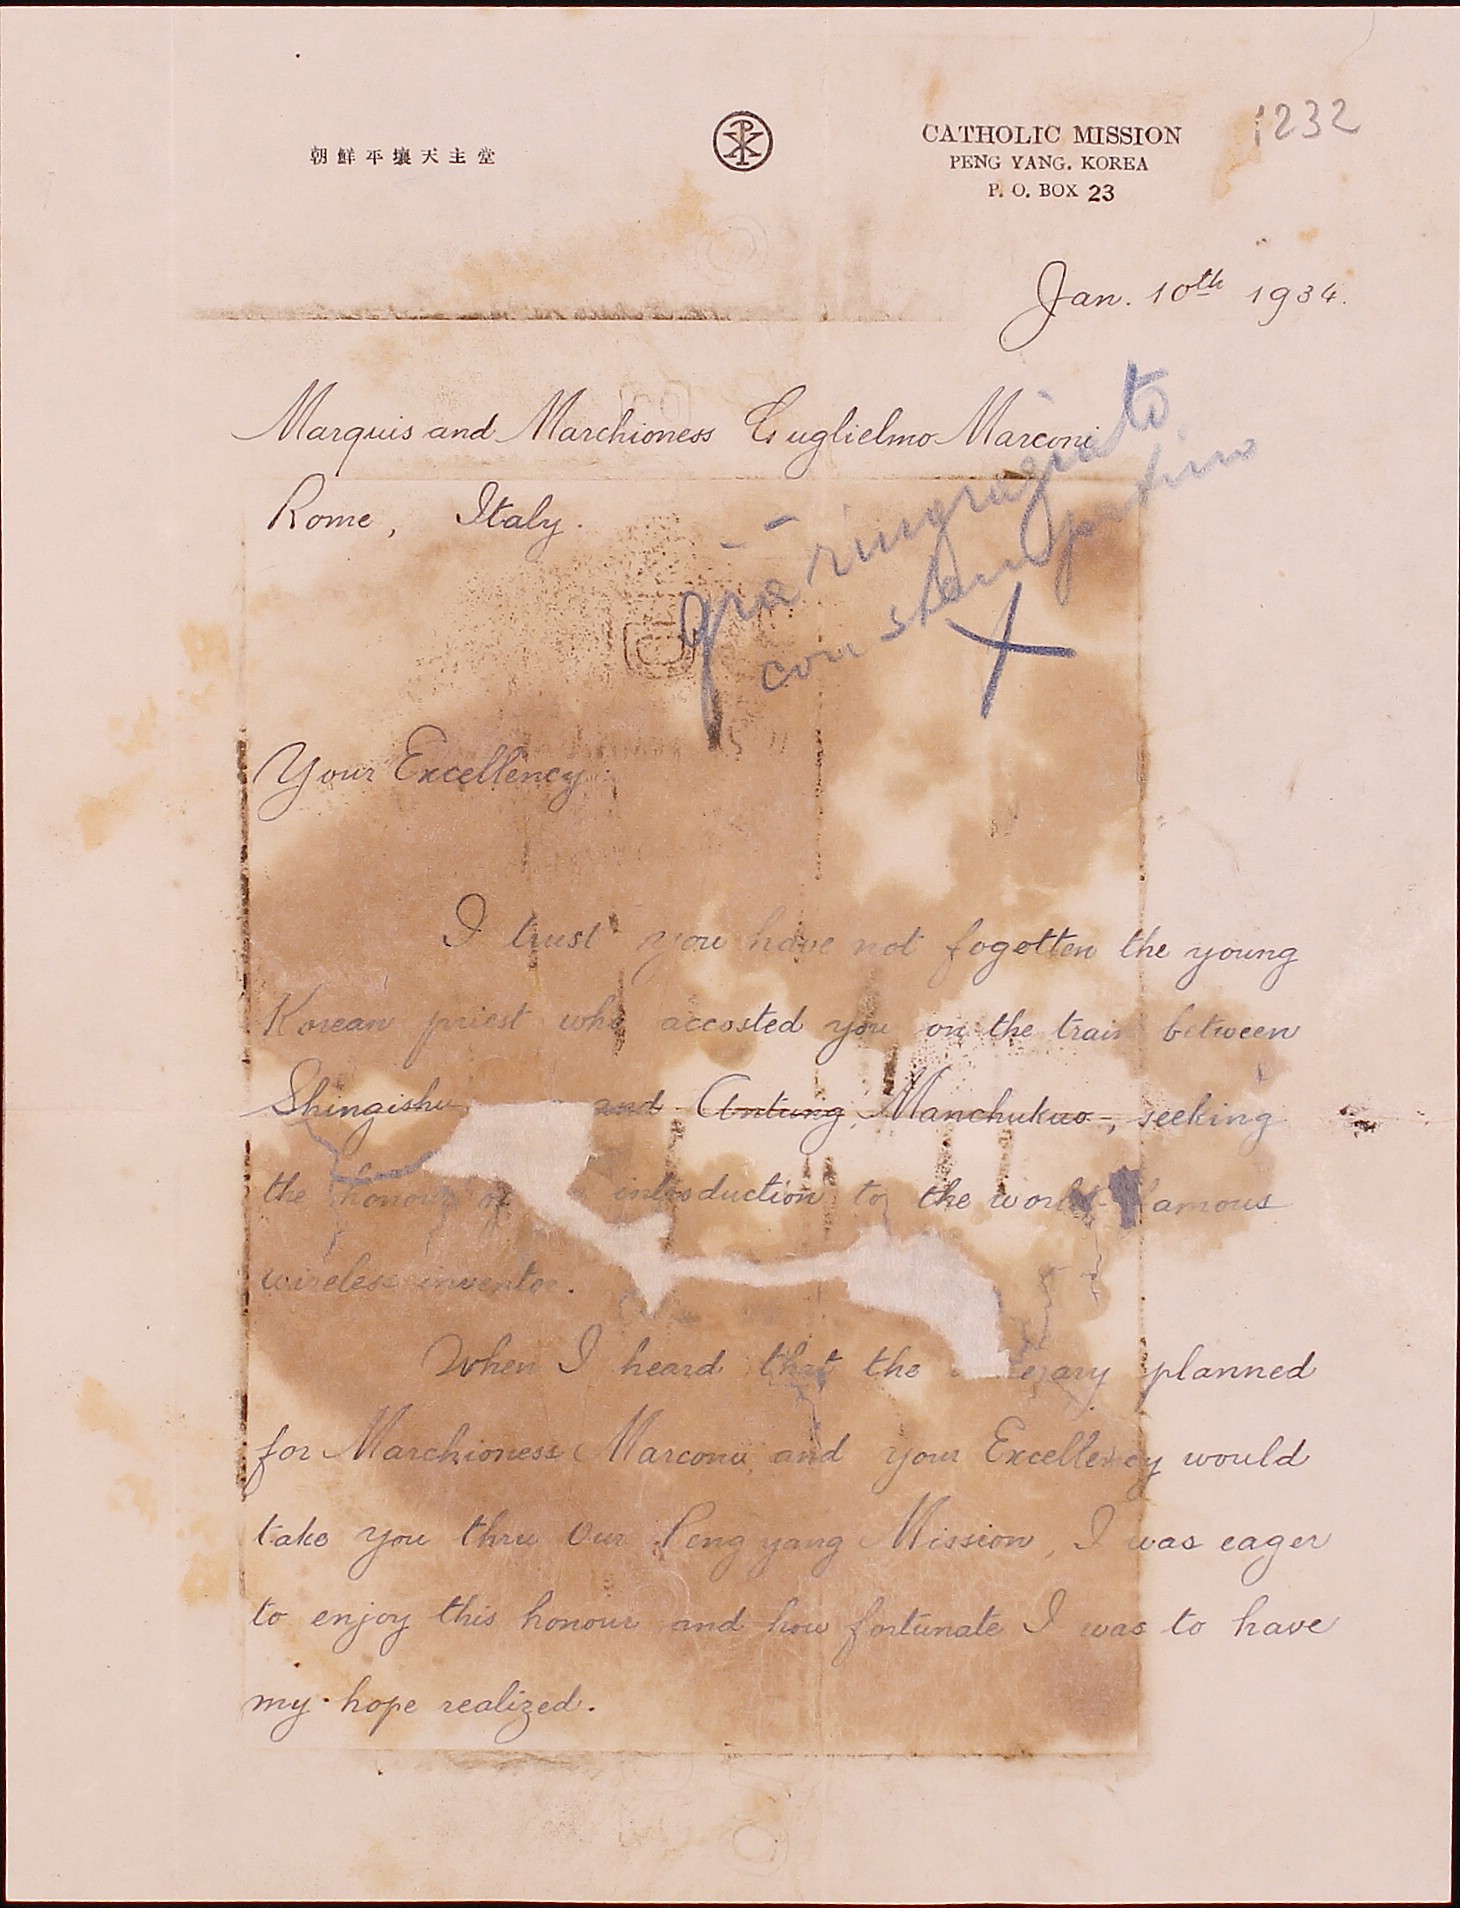 朝鮮平壤天主堂
CATHOLIC MISSION
PENG YANG. KOREA
P. O. BOX 23
1232
Jan. 10th 1934.
Marquis and Marchioness Guglielmo Marconi
Rome, Italy.
già ringraziato
con stampatino
Your Excellency:
I trust you have not fogotten the young
Korean priest who accosted you on the train between
Shingishu and Antung, Manchukuo-, seeking
the honour of introduction to the world-famous
wireless inventor.
When I heard that the planned
for Marchioness Marconi and your Excellency would
take you thru Our Peng yang Mission, I was eager
to enjoy this honour and how fortunate I was to have
my hope realized.